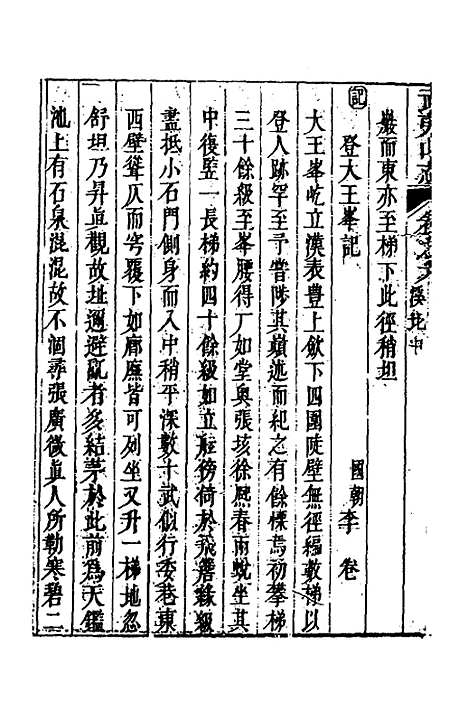 武夷山志 卷六 溪北中
巖而東亦至梯下此徑稍坦
記
登大王峯記
國朝 李卷
大王峯屹立漢表豐上歛下四圍陡壁無徑編數梯以
登人跡罕至予嘗陟其巔述而紀之有餘慄焉初攀梯
三十餘級至峯腰得厂如堂奥張垓徐熈春兩蛻坐其
中復竪一長梯約四十餘級如立壁傍倚於飛磴緣級
盡抵小石門側身而入中稍平深數十武似行委巷東
西壁聳仄而穹覆下如廊廡皆可列坐又升一梯地忽
舒坦乃昇眞觀故址邇避亂者多結茅於此前為天鑑
池上有石泉混混故不涸尋張廣微眞人所勒寒碧二